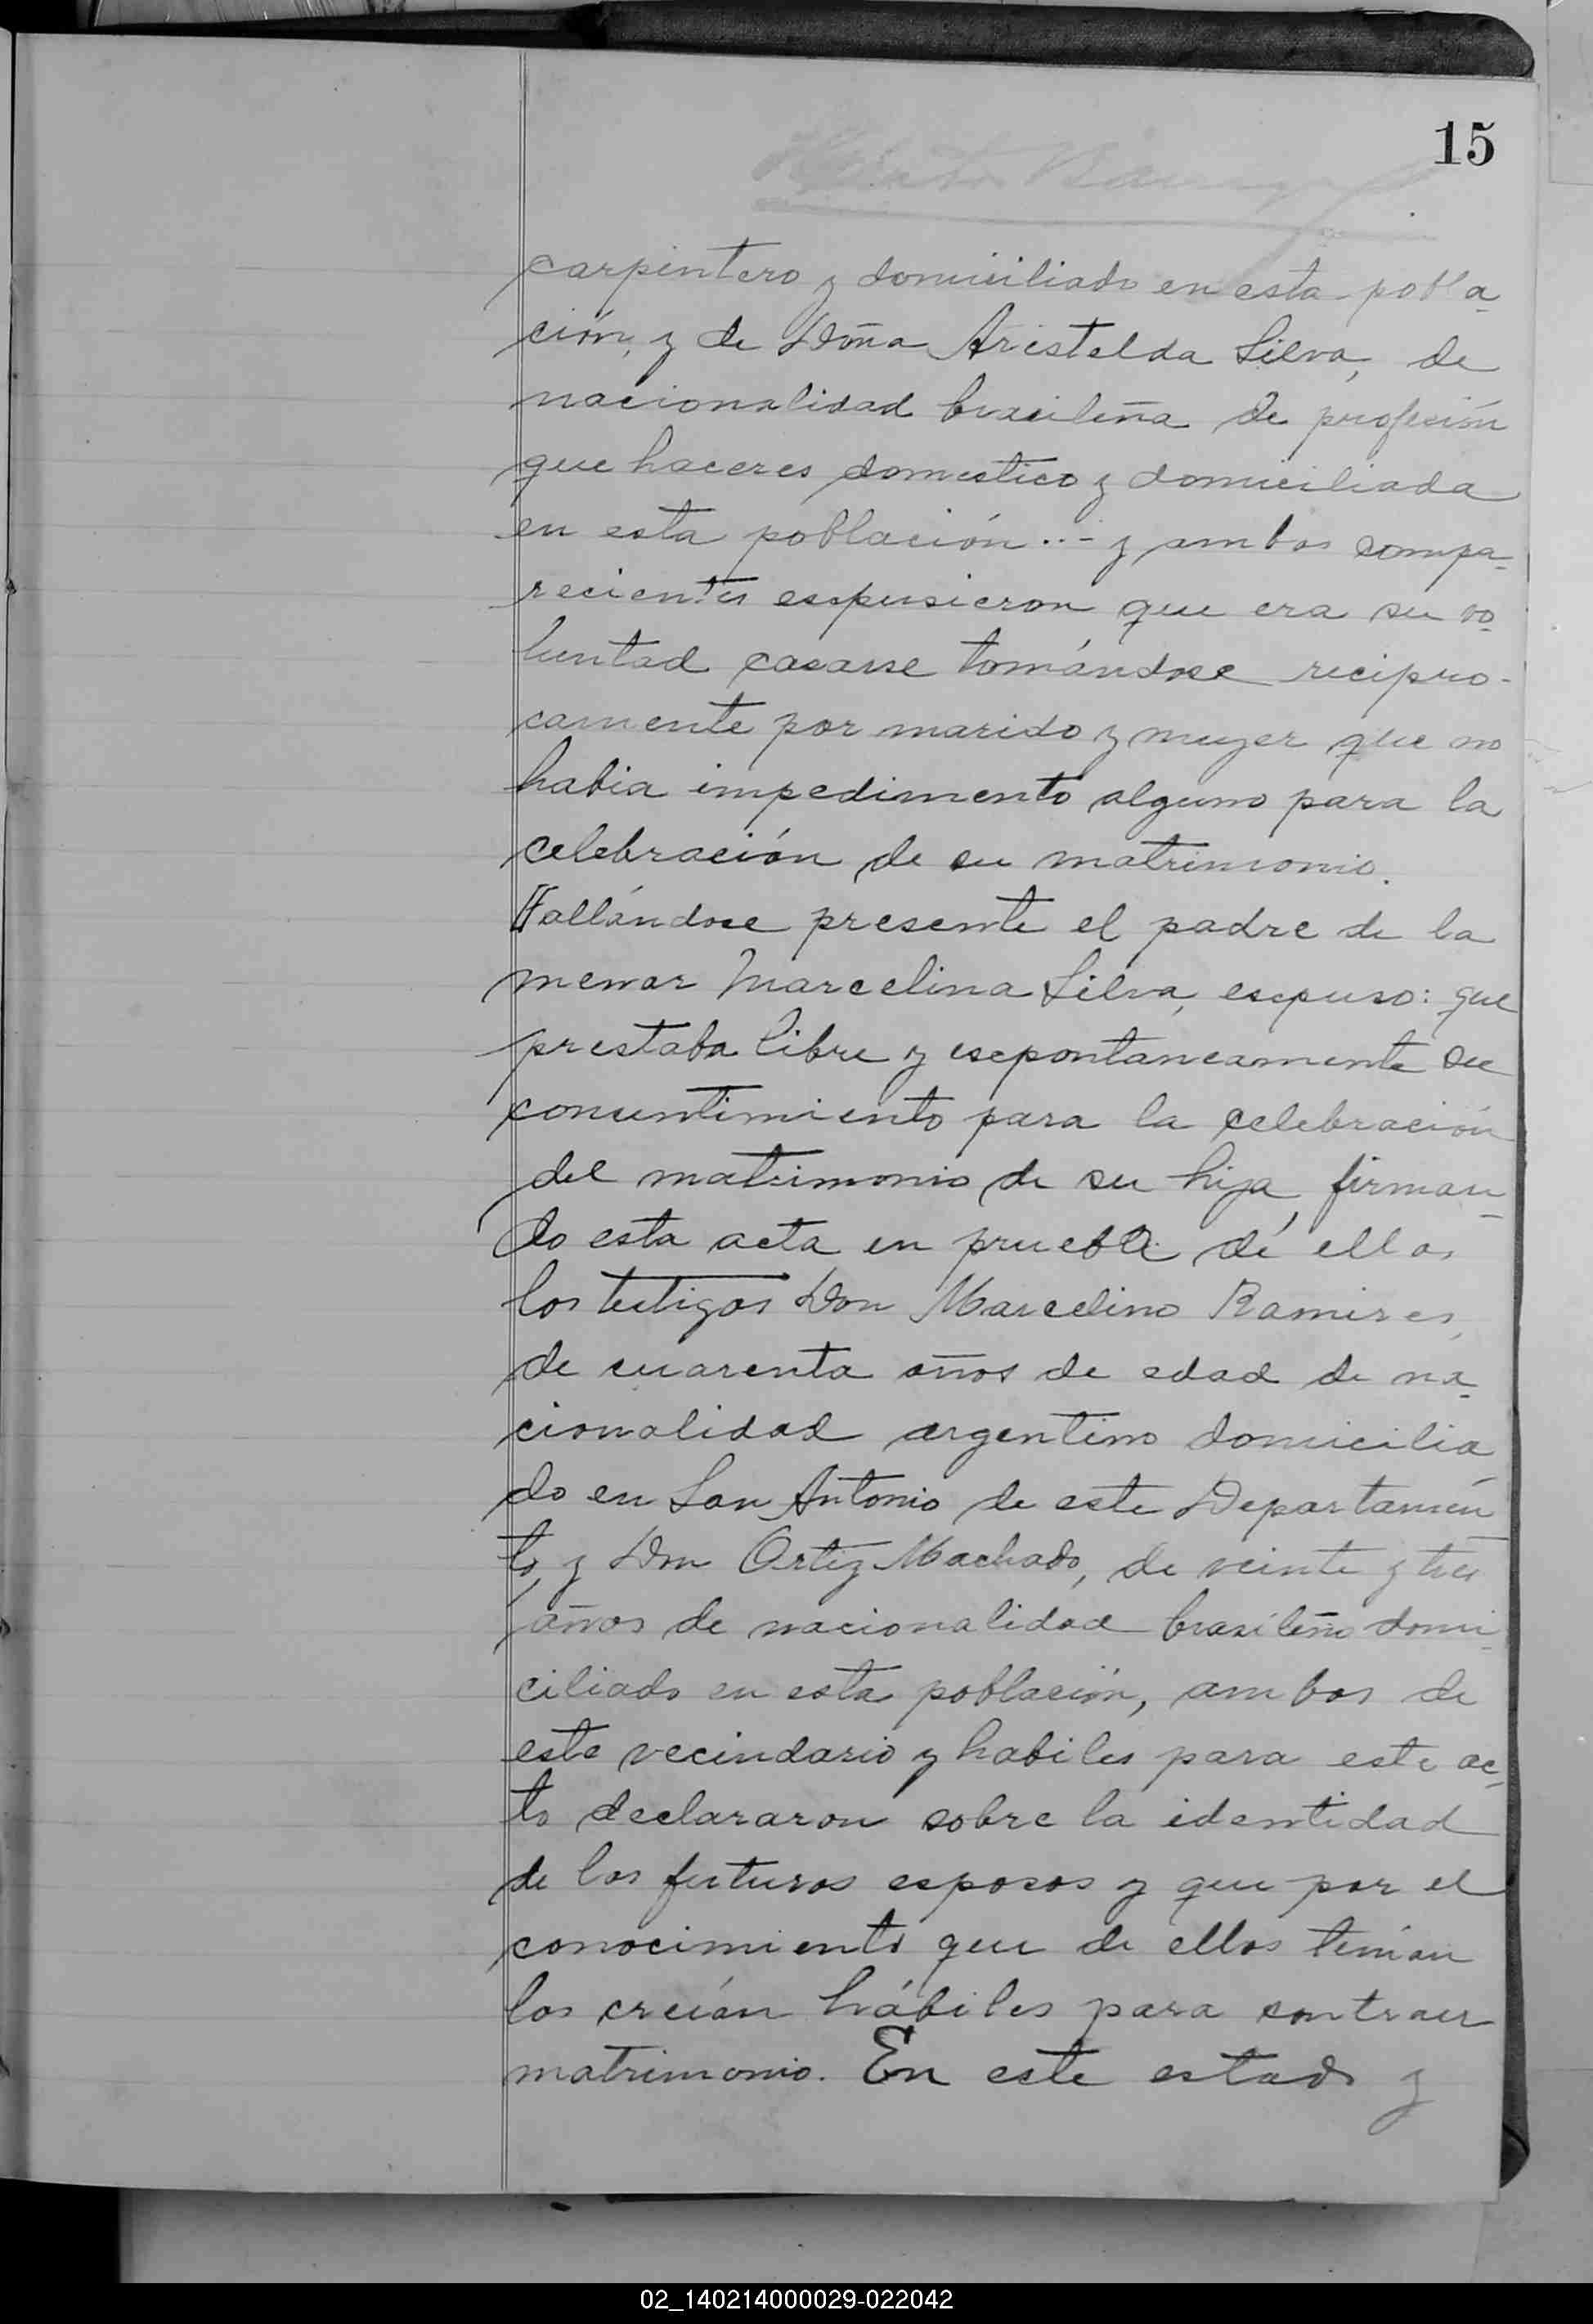 15
carpintero y domiciliado en esta pobla
ción, y de Doña Aristelda Silva, de
nacionalidad brasileña de profesión
que haceres domestico y domiciliada
en esta población..- y ambos compa-
recientes espusieron que era su vo-
luntad casarse tomándose recipro-
camente por marido y muger que no
habia impedimento alguno para la
celebración de su matrimonio.
Hallándose presente el padre de la
menor Marcelina Silva, espuso: que
prestaba libre y espontaneamente su
consentimiento para la celebración
del matrimonio de su hija, firman-
do esta acta en prueba de ello,
los testigos Don Marcelino Ramires,
de cuarenta años de edad de na-
cionalidad argentino domicilia
do en San Antonio de este Departamen
to, y Don Ortiz Machado, de veinte y tres
años de nacionalidad brasileño domi-
ciliado en esta población, ambos de
este vecindario y habiles para este ac-
to declararon sobre la identidad
de los futuros esposos y que por el
conocimiento que de ellos tenían
los creían hábiles para contraer
matrimonio. En este estado y
02_140214000029-022042